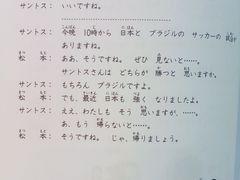 サントス： いいですね。
サントス： 今晩 10時から 日本と ブラジルの サッカーの 試合が
ありますね。
松本： ああ、そうですね。 ぜひ 見ないと……。
サントスさんは どちらが 勝つと 思いますか。
サントス： もちろん ブラジルですよ。
松本： でも、最近 日本も 強く なりましたよ。
サントス： ええ、わたしも そう 思いますが、……。
あ、もう 帰らないと……。
松本： そうですね。 じゃ、帰りましょう。